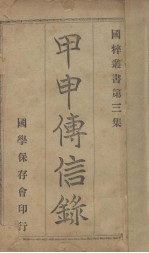 國粹叢書第三集
甲申傳信錄
國學保存會印行